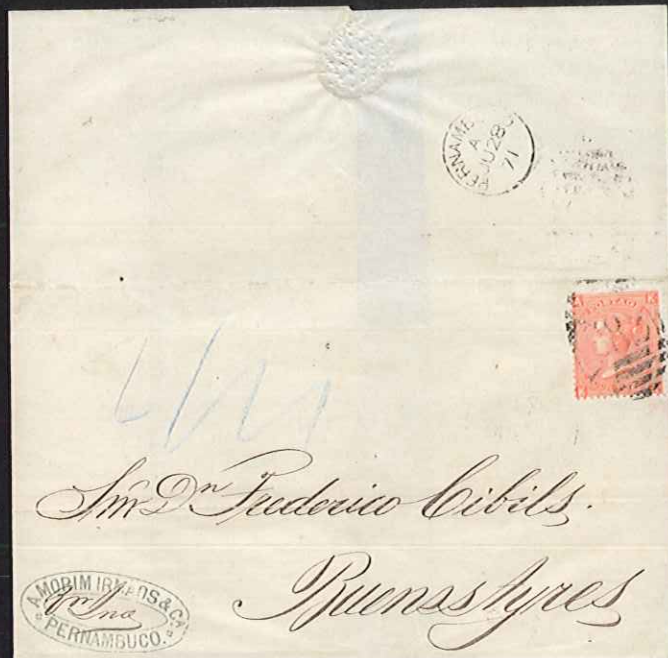 PERNAMB
A
JU 28
71
Sñr Dn Frederico Cibils.
Buenos Ayres
AMORIM IRMÃOS & CA
PERNAMBUCO.